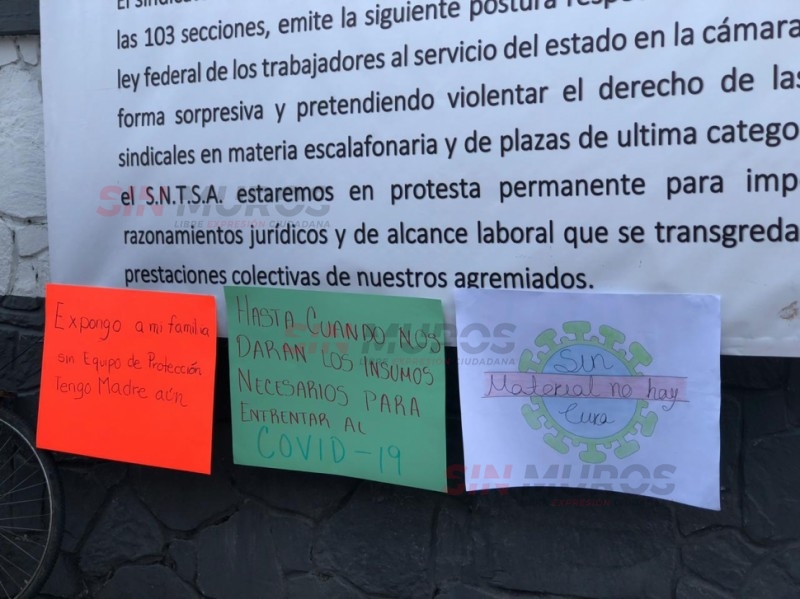 El sindica
las 103 secciones, emite la siguiente postura resp
ley federal de los trabajadores al servicio del estado en la cámara
forma sorpresiva y pretendiendo violentar el derecho de las
sindicales en materia escalafonaria y de plazas de ultima catego
el S.N.T.S.A. estaremos en protesta permanente para imp
razonamientos jurídicos y de alcance laboral que se transgreda
prestaciones colectivas de nuestros agremiados.
Expongo a mi familia
sin Equipo de Protección
Tengo Madre aún
HASTA CUANDO NOS
DARAN LOS INSUMOS
NECESARIOS PARA
ENFRENTAR AL
COVID-19
Sin
Material no hay
Cura
SIN MUROS
LIBRE EXPRESIÓN CIUDADANA
SIN MUROS
LIBRE EXPRESIÓN CIUDADANA
SIN MUROS
LIBRE EXPRESIÓN CIUDADANA